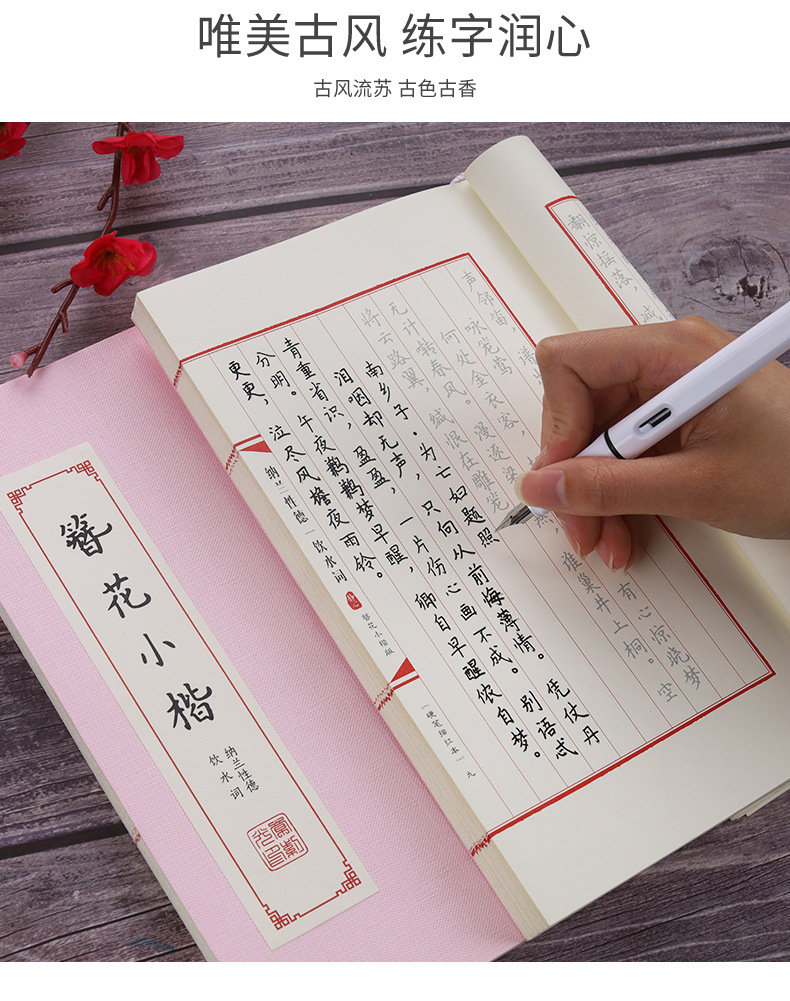 唯美古风 练字润心
古风流苏 古色古香
翻惊摇落,减
声邻笛,谱
咏笼莺
何处金衣客,有心惊晓梦
无计啭春风。漫逐梁燕,谁巢井上桐。空
将云路翼,缄恨在雕笼
南乡子·为亡妇题照
泪咽却无声,只向从前悔薄情。凭仗丹
青重省识,盈盈,一片伤心画不成。别语忒
分明。午夜鹣鹣梦早醒,卿自早醒侬自梦。
更更,泣尽风檐夜雨铃。
纳兰性德|饮水词
簪花小楷版
(硬笔描红本)九
簪花小楷
纳兰性德
饮水词